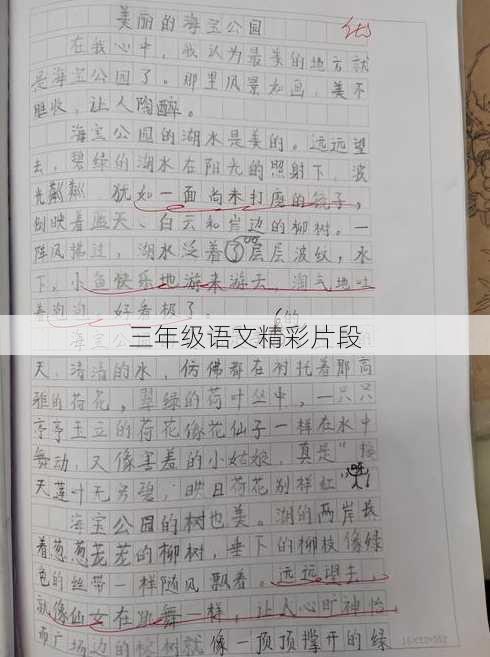 美丽的海宝公园
优
在我心中，我认为最美的地方就
是海宝公园了。那里风景如画，美不
胜收，让人陶醉。
海宝公园的湖水是美的。远远望
去，碧绿的湖水在阳光的照射下，波
光粼粼，犹如一面尚未打磨的镜子，
倒映着蓝天、白云和岸边的柳树。一
阵风拂过，湖水泛着层层波纹，水
下，小鱼快乐地游来游去，淘气地吐
着泡泡，好看极了。
海宝公园
的
三年级语文精彩片段
天，清清的水，仿佛都在衬托着那高
雅的荷花，翠绿的荷叶丛中，一只只
亭亭玉立的荷花像荷花仙子一样在水中
舞动，又像害羞的小姑娘，真是"接
天莲叶无穷碧，映日荷花别样红"
海宝公园的树也美。湖的两岸长
着葱葱茏茏的柳树，垂下的柳枝像绿
色的丝带一样随风飘着。远远望去，
就像仙女在跳舞一样，让人心旷神怡
广场边的树就像一顶顶撑开的绿